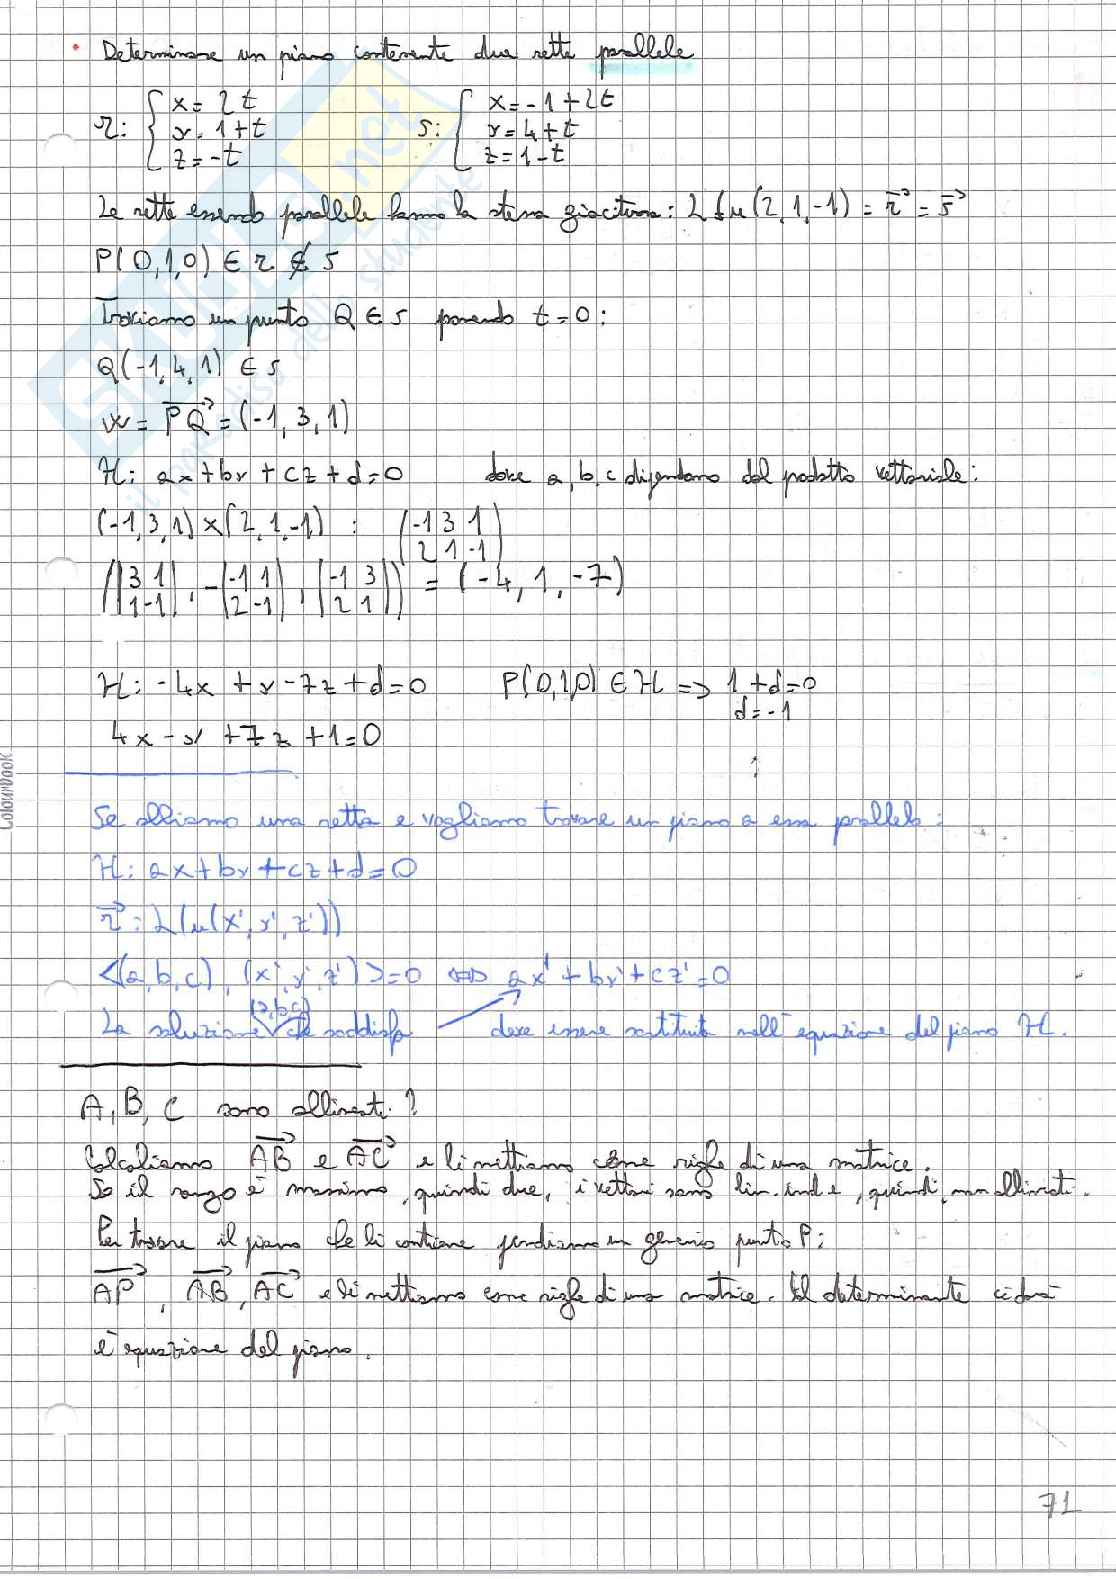 • Determinare un piano contenente due rette parallele
r: { x = 2t s: { x = -1 + 2t
y = 1 + t y = 4 + t
z = -t z = 1 - t
Le rette essendo parallele hanno la stessa giacitura: L{u(2,1,-1) = r⃗ = s⃗
P(0,1,0) ∈ r ∉ s
Troviamo un punto Q ∈ s ponendo t = 0:
Q(-1,4,1) ∈ s
w = PQ⃗ = (-1, 3, 1)
H: ax + by + cz + d = 0 dove a, b, c dipendono dal prodotto vettoriale:
(-1,3,1) × (2,1,-1) : (-1 3 1
2 1 -1)
(|3 1|, -|-1 1|, |-1 3|) = (-4, 1, -7)
|1 -1| |2 -1| |2 1|
H: -4x + y - 7z + d = 0 P(0,1,0) ∈ H => 1 + d = 0
d = -1
4x - y + 7z + 1 = 0
Se abbiamo una retta e vogliamo trovare un piano a essa parallelo:
H: ax + by + cz + d = 0
r⃗: L(u(x', y', z'))
<(a,b,c), (x', y', z')> = 0 <=> ax' + by' + cz' = 0
(a,b,c)
La soluzione che soddisfa deve essere sostituita nell'equazione del piano H.
A, B, C sono allineati?
Calcoliamo AB⃗ e AC⃗ e li mettiamo come righe di una matrice.
Se il rango è massimo, quindi due, i vettori sono lin. ind e, quindi, non allineati.
Per trovare il piano che li contiene prendiamo un generico punto P:
AP⃗, AB⃗, AC⃗ e li mettiamo come righe di una matrice. Il determinante ci darà
l'equazione del piano.
71
Colourbook
SKUOLA.net
il paradiso dello studente